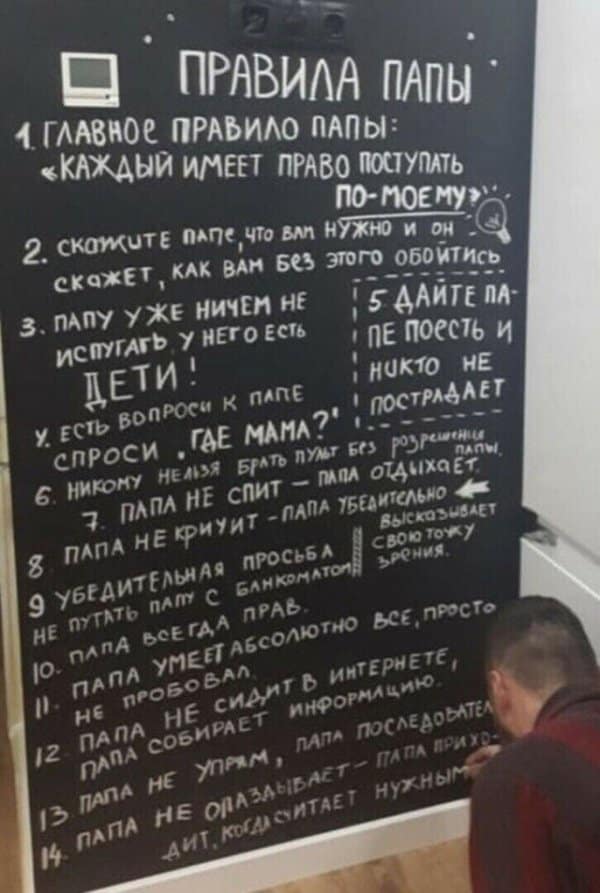 ПРАВИЛА ПАПЫ
1. ГЛАВНОЕ ПРАВИЛО ПАПЫ:
«КАЖДЫЙ ИМЕЕТ ПРАВО ПОСТУПАТЬ
ПО-МОЕМУ»
2. СКАЖИТЕ ПАПЕ, ЧТО ВАМ НУЖНО И ОН
СКАЖЕТ, КАК ВАМ БЕЗ ЭТОГО ОБОЙТИСЬ
3. ПАПУ УЖЕ НИЧЕМ НЕ
ИСПУГАТЬ У НЕГО ЕСТЬ
ДЕТИ!
4. ЕСТЬ ВОПРОСЫ К ПАПЕ
СПРОСИ „ГДЕ МАМА?"
5 ДАЙТЕ ПА-
ПЕ ПОЕСТЬ И
НИКТО НЕ
ПОСТРАДАЕТ
6. НИКОМУ НЕЛЬЗЯ БРАТЬ ПУЛЬТ БЕЗ РОЗРЕШЕНИЯ
ПАПЫ.
7. ПАПА НЕ СПИТ – ПАПА ОТДЫХАЕТ.
8 ПАПА НЕ КРИЧИТ – ПАПА УБЕДИТЕЛЬНО
ВЫСКАЗЫВАЕТ
СВОЮ ТОЧКУ
ЗРЕНИЯ.
9 УБЕДИТЕЛЬНАЯ ПРОСЬБА
НЕ ПУТАТЬ ПАПУ С БАНКОМАТОМ
10. ПАПА ВСЕГДА ПРАВ.
11. ПАПА УМЕЕТ АБСОЛЮТНО ВСЕ, ПРОСТО
НЕ ПРОБОВАЛ.
12 ПАПА НЕ СИДИТ В ИНТЕРНЕТЕ,
ПАПА СОБИРАЕТ ИНФОРМАЦИЮ.
13. ПАПА НЕ УПРЯМ, ПАПА ПОСЛЕДОВАТЕЛ
14. ПАПА НЕ ОПАЗДЫВАЕТ – ПАПА ПРИХО-
ДИТ, КОГДА СЧИТАЕТ НУЖНЫМ